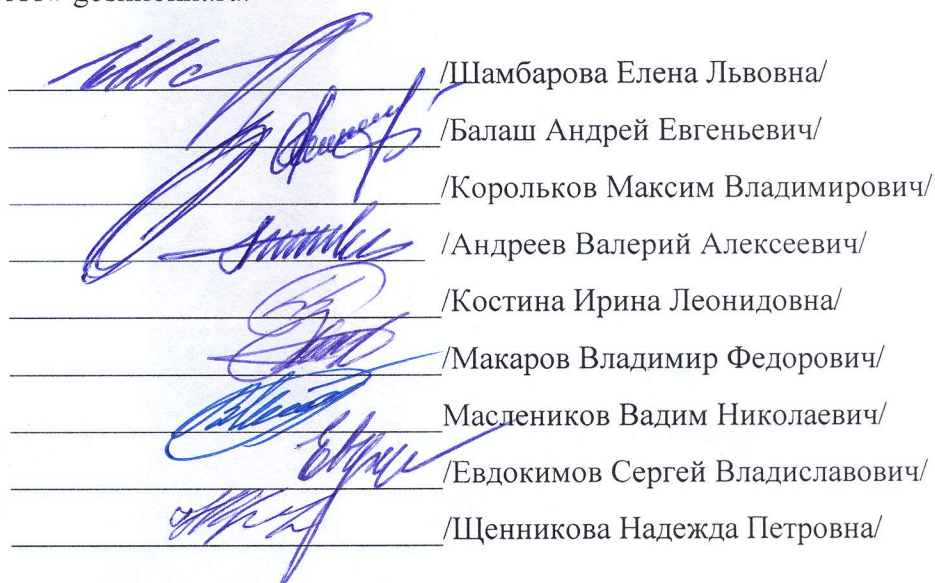 /Шамбарова Елена Львовна/
/Балаш Андрей Евгеньевич/
/Корольков Максим Владимирович/
/Андреев Валерий Алексеевич/
/Костина Ирина Леонидовна/
/Макаров Владимир Федорович/
Маслеников Вадим Николаевич/
/Евдокимов Сергей Владиславович/
/Щенникова Надежда Петровна/